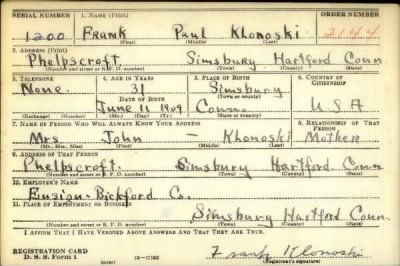 SERIAL NUMBER 1. NAME (Print) ORDER NUMBER
1200 Frank Paul Klonoski 2144
(First) (Middle) (Last)
2. ADDRESS (Print)
Phelpscroft Simsbury Hartford Conn
(Number and street or R. F. D. number) (Town) (County) (State)
3. TELEPHONE 4. AGE IN YEARS 5. PLACE OF BIRTH 6. COUNTRY OF CITIZENSHIP
None. 31 Simsbury
DATE OF BIRTH (Town or county)
June 11 1909 Conn. U S A
(Exchange) (Number) (Mo.) (Day) (Yr.) (State or country)
7. NAME OF PERSON WHO WILL ALWAYS KNOW YOUR ADDRESS 8. RELATIONSHIP OF THAT PERSON
Mrs John — Khonoski Mother
(Mr., Mrs., Miss) (First) (Middle) (Last)
9. ADDRESS OF THAT PERSON
Phelpscroft Simsbury Hartford Conn
(Number and street or R. F. D. number) (Town) (County) (State)
10. EMPLOYER'S NAME
Ensign-Bickford Co.
11. PLACE OF EMPLOYMENT OR BUSINESS
Simsbury Hartford Conn.
(Number and street or R. F. D. number) (Town) (County) (State)
I AFFIRM THAT I HAVE VERIFIED ABOVE ANSWERS AND THAT THEY ARE TRUE.
REGISTRATION CARD
D. S. S. Form 1 (over) 16—17105 Frank Klonoski
(Registrant's signature)